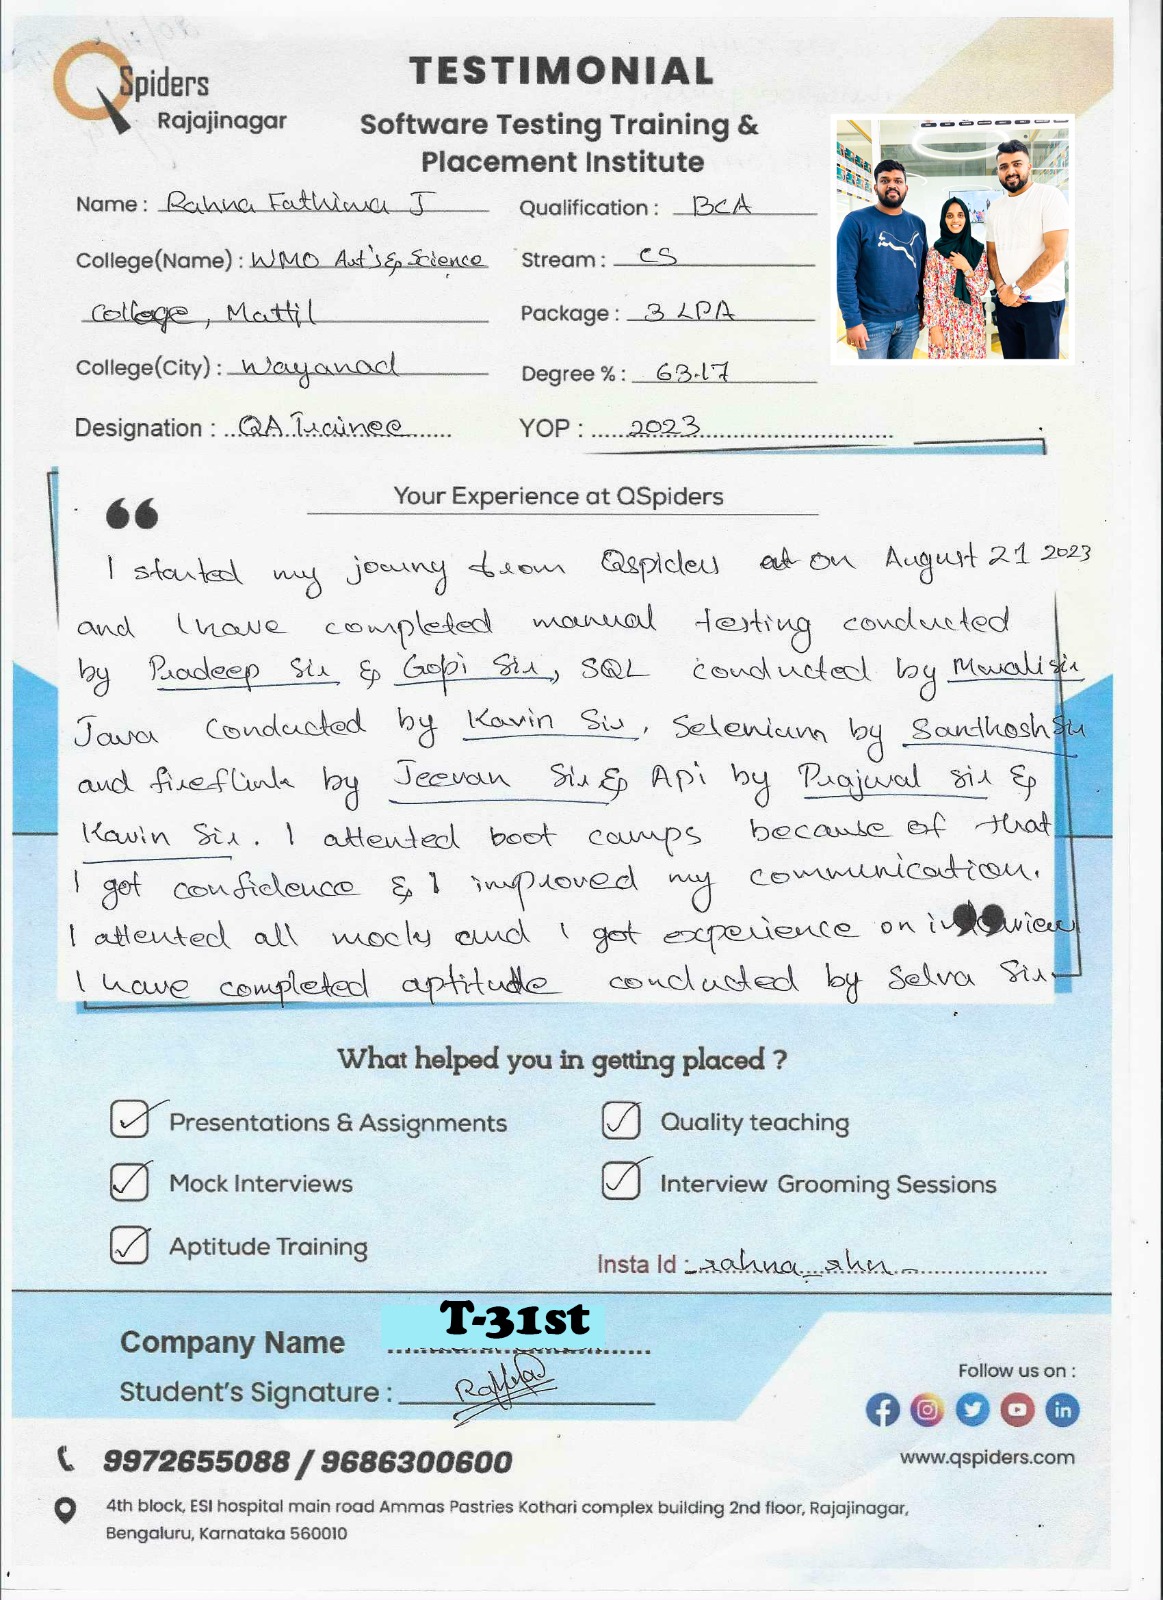 QSpiders
Rajajinagar
TESTIMONIAL
Software Testing Training &
Placement Institute
Name : Rahna Fathima J
Qualification : BCA
College(Name) : WMO Art's & Science
Stream : CS
College, Muttil
Package : 3 LPA
College(City) : Wayanad
Degree % : 63.17
Designation : QA Trainee
YOP : 2023
Your Experience at QSpiders
I started my joouny from Qspiders at on August 21 2023
and I have completed manual testing conducted
by Pradeep Sir & Gopi Sir, SQL conducted by Murali sir
Java Conducted by Kavin Sir, Selenium by Santhosh Sir
and fireflink by Jeevan Sir & Api by Prajwal sir &
Kavin Sir. I attented boot camps because of that
I got confidence & I improved my communication.
I attented all mocks and I got experience on interview
I have completed aptitude conducted by Selva Sir
What helped you in getting placed ?
Presentations & Assignments
Quality teaching
Mock Interviews
Interview Grooming Sessions
Aptitude Training
Insta Id : _rahna_shn_
Company Name T-31st
Student's Signature :
Follow us on :
9972655088 / 9686300600
www.qspiders.com
4th block, ESI hospital main road Ammas Pastries Kothari complex building 2nd floor, Rajajinagar,
Bengaluru, Karnataka 560010